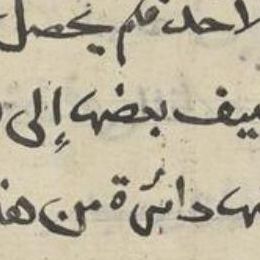 لاحد فلم يحصل
يف بعضها إلى
ها دائرة من هذ